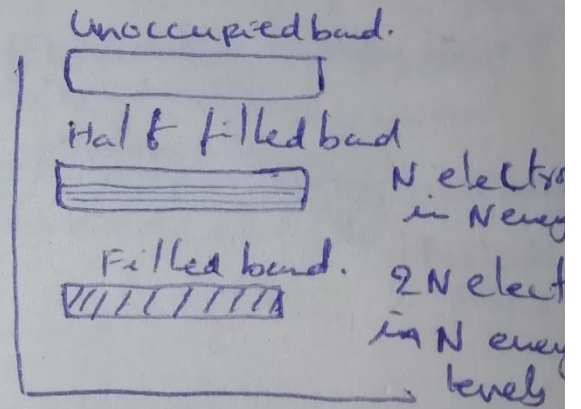 Unoccupied band.
Half filled band
N electro
in N ener
Filled band.
2N elect
in N energy
levels